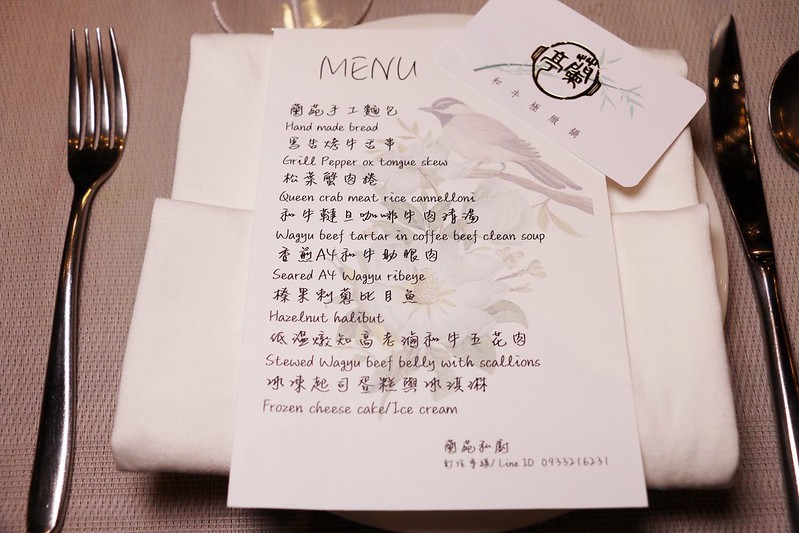 MENU
蘭苑手工麵包
Hand made bread
黑吿烤牛舌串
Grill Pepper ox tongue skew
松葉蟹肉捲
Queen crab meat rice cannelloni
和牛韃旦咖啡牛肉清湯
Wagyu beef tartar in coffee beef clean soup
香煎A4和牛肋眼肉
Seared A4 Wagyu ribeye
榛果刺蔥比目魚
Hazelnut halibut
低溫燉知高老滷和牛五花肉
Stewed Wagyu beef belly with scallions
冰凍起司蛋糕與冰淇淋
Frozen cheese cake/Ice cream
蘭苑私廚
訂位專線/Line ID 0933216231
蘭亭
和牛極緻鍋